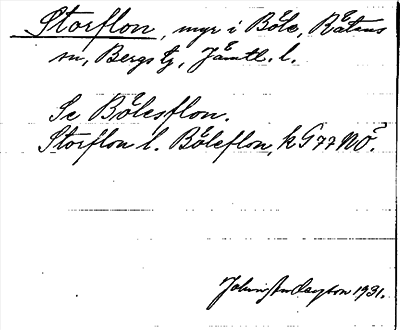 Storflon, myr i Böle, Rätans
sn, Bergs tg, Jämtl. l.
Se Bölesflon.
Storflon l. Böleflon, k G 77 NÖ?
John Andersson 1931.